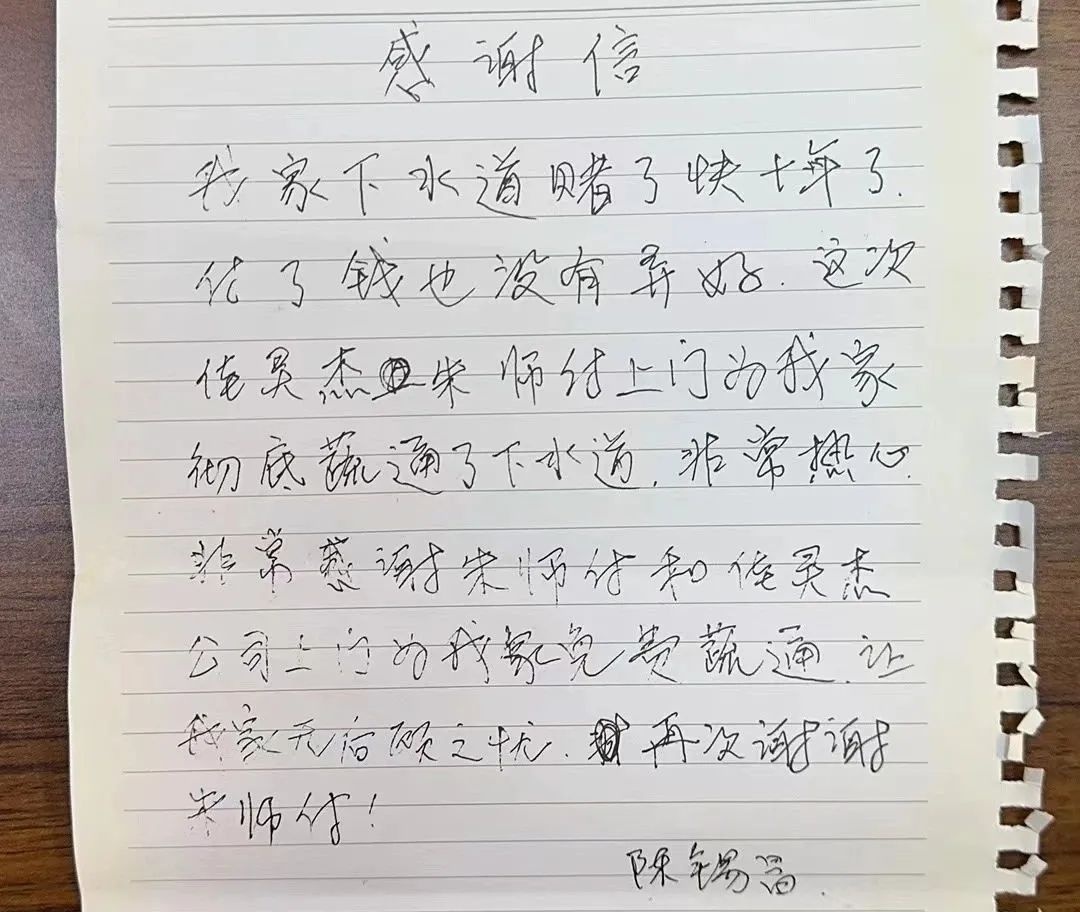 感谢信
我家下水道赌了快十年了.
化了钱也没有弄好.这次
佬灵杰朱师付上门为我家
彻底蔬通了下水道.非常热心.
非常感谢朱师付和佬灵杰
公司上门为我家免费蔬通.让
我家无后顾之忧.再次谢谢
朱师付!
陈锡昌.